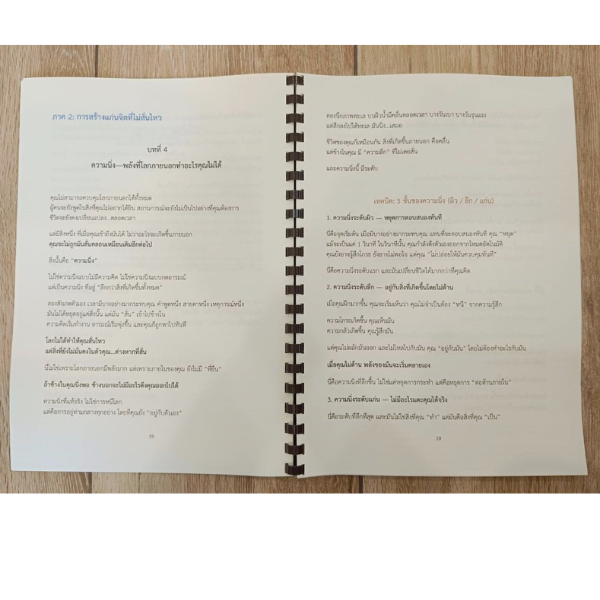 ภาค 2: การสร้างแก่นจิตที่ไม่สั่นไหว
บทที่ 4
ความนิ่ง—พลังที่โลกภายนอกทำอะไรคุณไม่ได้
คุณไม่สามารถควบคุมโลกภายนอกได้ทั้งหมด
ผู้คนจะยังพูดในสิ่งที่คุณไม่อยากได้ยิน สถานการณ์จะยังไม่เป็นไปอย่างที่คุณต้องการ
ชีวิตจะยังคงเปลี่ยนแปลง...ตลอดเวลา
แต่มีสิ่งหนึ่ง ที่เมื่อคุณเข้าถึงมันได้ ไม่ว่าอะไรจะเกิดขึ้นภายนอก
คุณจะไม่ถูกมันสั่นคลอนเหมือนเดิมอีกต่อไป
สิ่งนั้นคือ "ความนิ่ง"
ไม่ใช่ความนิ่งแบบไม่มีความคิด ไม่ใช่ความนิ่งแบบกดอารมณ์
แต่เป็นความนิ่ง ที่อยู่ "ลึกกว่าสิ่งที่เกิดขึ้นทั้งหมด"
ลองสังเกตตัวเอง เวลามีบางอย่างมากระทบคุณ คำพูดหนึ่ง สายตาหนึ่ง เหตุการณ์หนึ่ง
มันไม่ได้หยุดอยู่แค่สิ่งนั้น แต่มัน "สั่น" เข้าไปข้างใน
ความคิดเริ่มทำงาน อารมณ์เริ่มพุ่งขึ้น และคุณก็ถูกพาไปทันที
โลกไม่ได้ทำให้คุณสั่นไหว
แต่สิ่งที่ยังไม่มั่นคงในตัวคุณ...ต่างหากที่สั่น
นี่ไม่ใช่เพราะโลกภายนอกมีพลังมาก แต่เพราะภายในของคุณ ยังไม่มี "ที่ยืน"
ถ้าข้างในคุณนิ่งพอ ข้างนอกจะไม่มีอะไรดึงคุณออกไปได้
ความนิ่งที่แท้จริง ไม่ใช่การหนีโลก
แต่คือการอยู่ท่ามกลางทุกอย่าง โดยที่คุณยัง "อยู่กับตัวเอง"
ลองนึกภาพทะเล บนผิวน้ำมีคลื่นตลอดเวลา บางวันเบา บางวันรุนแรง
แต่ลึกลงไปใต้ทะเล มันนิ่ง...เสมอ
ชีวิตของคุณก็เหมือนกัน สิ่งที่เกิดขึ้นภายนอก คือคลื่น
แต่ข้างในคุณ มี "ความลึก" ที่ไม่เคยสั่น
และความนิ่งนี้ มีระดับ
เทคนิค: 3 ชั้นของความนิ่ง (ผิว / ลึก / แก่น)
1. ความนิ่งระดับผิว — หยุดการตอบสนองทันที
นี่คือจุดเริ่มต้น เมื่อมีบางอย่างมากระทบคุณ แทนที่จะตอบสนองทันที คุณ "หยุด"
แม้จะเป็นแค่ 1 วินาที ในวินาทีนั้น คุณกำลังดึงตัวเองออกจากโหมดอัตโนมัติ
คุณยังอาจรู้สึกโกรธ ยังอาจไม่พอใจ แต่คุณ "ไม่ปล่อยให้มันควบคุมทันที"
นี่คือความนิ่งระดับแรก และมันเปลี่ยนชีวิตได้มากกว่าที่คุณคิด
2. ความนิ่งระดับลึก — อยู่กับสิ่งที่เกิดขึ้นโดยไม่ต้าน
เมื่อคุณฝึกมากขึ้น คุณจะเริ่มเห็นว่า คุณไม่จำเป็นต้อง "หนี" จากความรู้สึก
ความโกรธเกิดขึ้น คุณเห็นมัน
ความกลัวเกิดขึ้น คุณรู้สึกมัน
แต่คุณไม่ผลักมันออก และไม่ไหลไปกับมัน คุณ "อยู่กับมัน" โดยไม่ต้องทำอะไรกับมัน
เมื่อคุณไม่ต้าน พลังของมันจะเริ่มคลายเอง
นี่คือความนิ่งที่ลึกขึ้น ไม่ใช่แค่หยุดการกระทำ แต่คือหยุดการ "ต่อต้านภายใน"
3. ความนิ่งระดับแก่น — ไม่มีอะไรแตะคุณได้จริง
นี่คือระดับที่ลึกที่สุด และมันไม่ใช่สิ่งที่คุณ "ทำ" แต่มันคือสิ่งที่คุณ "เป็น"